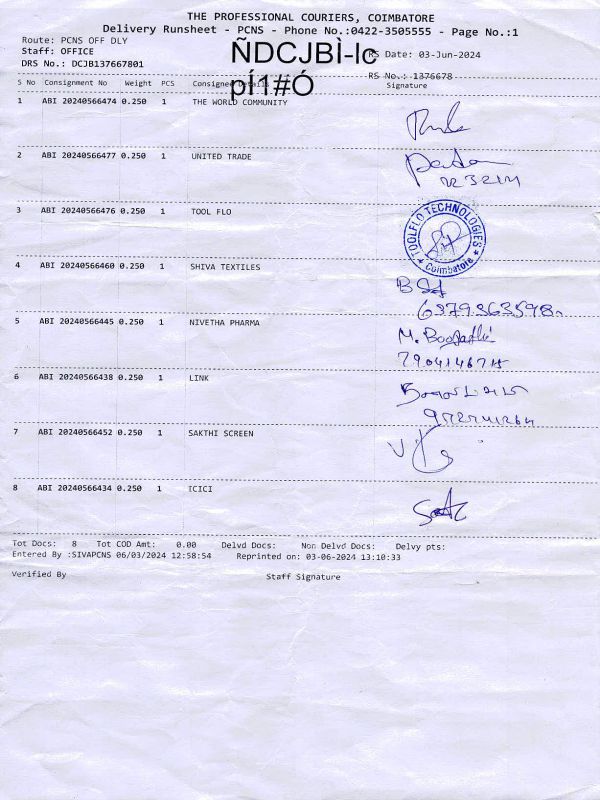 THE PROFESSIONAL COURIERS, COIMBATORE
Delivery Runsheet - PCNS - Phone No.:0422-3505555 - Page No.:1
Route: PCNS OFF DLY
Staff: OFFICE
RS Date: 03-Jun-2024
DRS No.: DCJB137667801
ÑDCJBÌ-lc
pÍ1#Ó
RS No.: 1376678
S No Consignment No Weight PCS Consignee Details Signature
1 ABI 20240566474 0.250 1 THE WORLD COMMUNITY
2 ABI 20240566477 0.250 1 UNITED TRADE
3 ABI 20240566476 0.250 1 TOOL FLO
TOOLFLO TECHNOLOGIES
Coimbatore
4 ABI 20240566460 0.250 1 SHIVA TEXTILES
6379363598
5 ABI 20240566445 0.250 1 NIVETHA PHARMA
6 ABI 20240566438 0.250 1 LINK
7 ABI 20240566452 0.250 1 SAKTHI SCREEN
8 ABI 20240566434 0.250 1 ICICI
Tot Docs: 8 Tot COD Amt: 0.00 Delvd Docs: Non Delvd Docs: Delvy pts:
Entered By :SIVAPCNS 06/03/2024 12:58:54 Reprinted on: 03-06-2024 13:10:33
Verified By Staff Signature